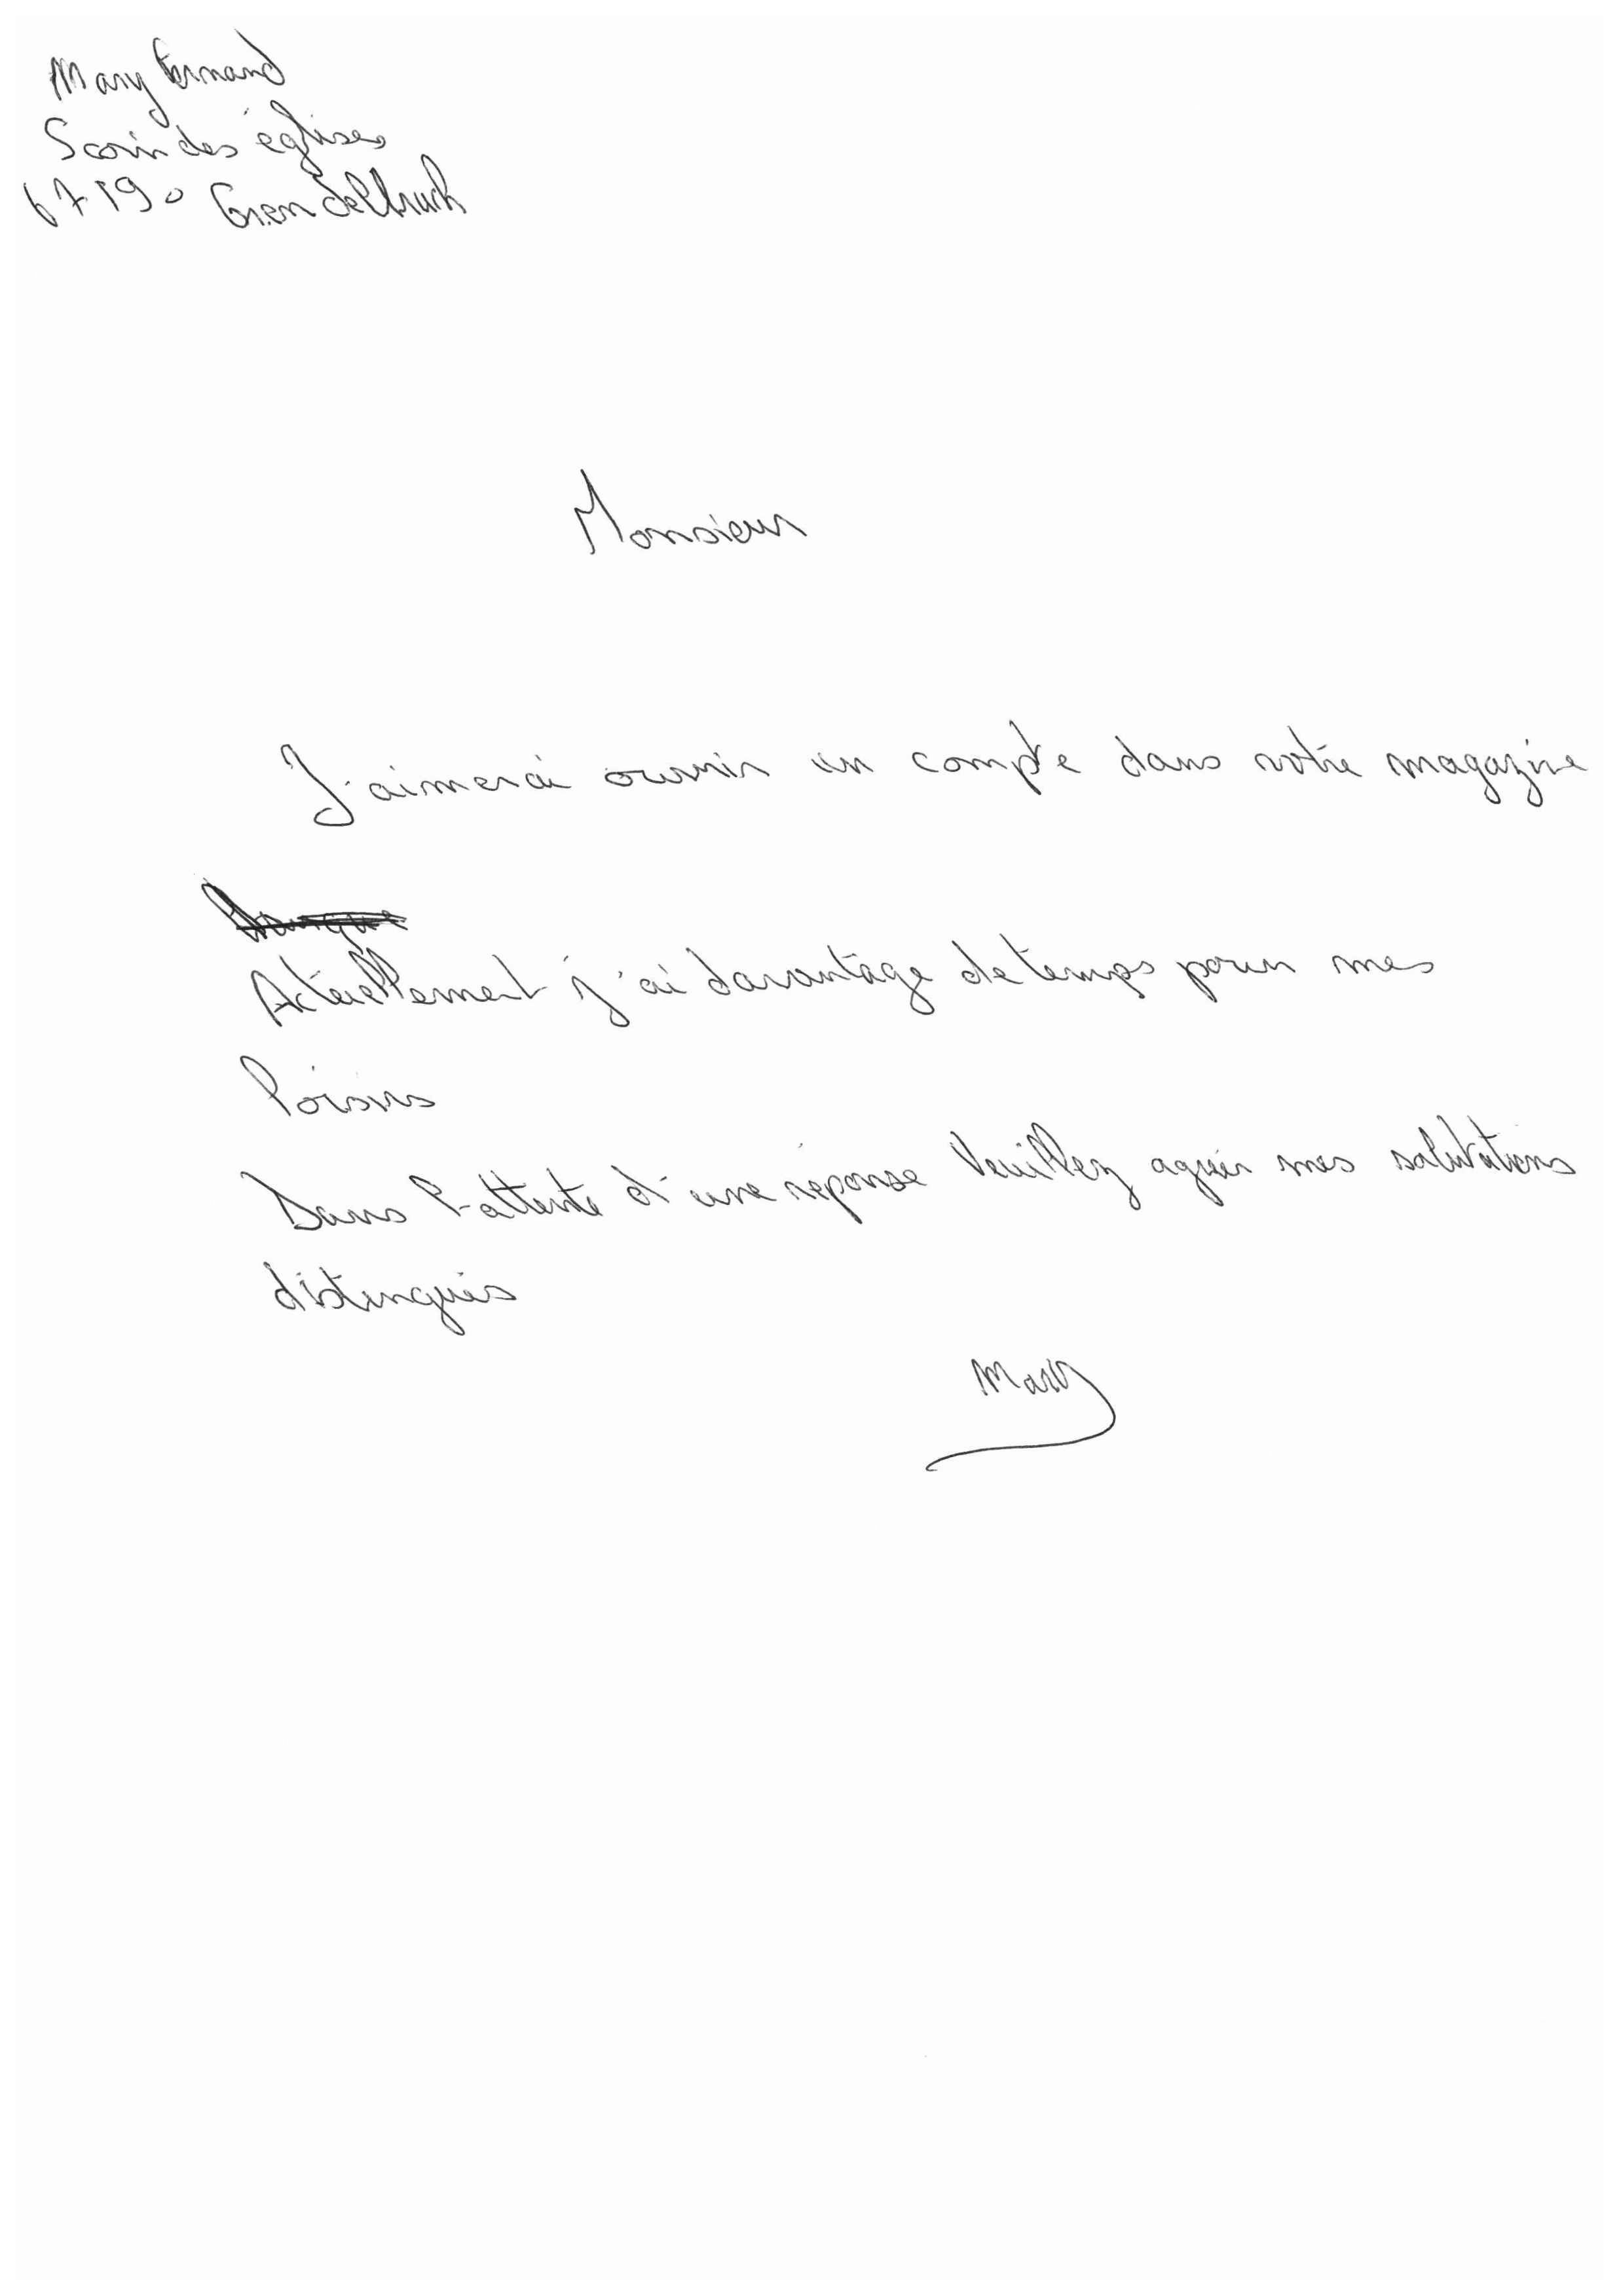 Mary Fernand
5 coin des églises
67190 Grendelbruch
Monsieur
J'aimerai ouvrir un compte dans votre magazine
Actuellement j'ai davantage de temps pour mes
loisirs
Dans l'attente d'une réponse Veuillez agréer mes salutations
distingués
Mary